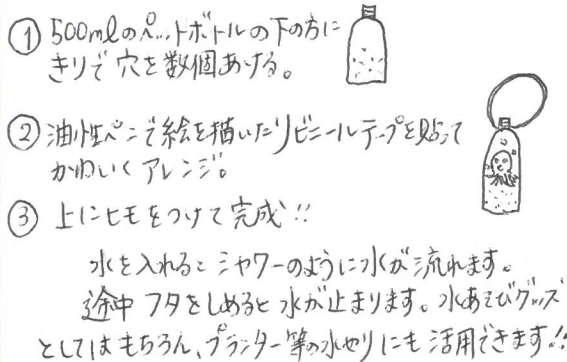 ① 500mlのペットボトルの下の方に
きりで穴を数個あける。
② 油性ペンで絵を描いたりビニールテープを貼って
かわいくアレンジ。
③ 上にヒモをつけて完成!!
水を入れるとシャワーのように水が流れます。
途中フタをしめると水が止まります。水あそびグッズ
としてはもちろん、プランター等の水やりにも活用できます!!